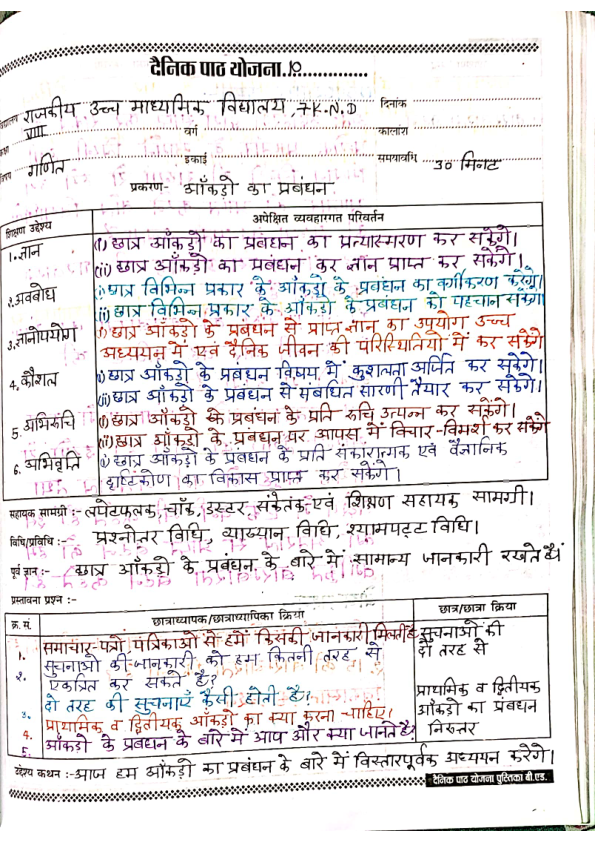 दैनिक पाठ योजना.10..............
राजकीय उच्च माध्यमिक विद्यालय, 7K.N.D दिनांक
VIII वर्ग कालांश
गणित इकाई समयावधि 30 मिनट
प्रकरण- आँकड़ो का प्रबंधन
शिक्षण उद्देश्य अपेक्षित व्यवहारगत परिवर्तन
1. ज्ञान (i) छात्र आँकड़ों का प्रबंधन का प्रत्यास्मरण कर सकेंगे।
(ii) छात्र आँकड़ो का प्रबंधन कर ज्ञान प्राप्त कर सकेंगे।
2. अवबोध (i) छात्र विभिन्न प्रकार के आँकड़ो के प्रबंधन का वर्गीकरण करेंगे।
(ii) छात्र विभिन्न प्रकार के आँकड़ो के प्रबंधन को पहचान सकेंगे।
3. ज्ञानोपयोग (i) छात्र आँकड़ो के प्रबंधन से प्राप्त ज्ञान का उपयोग उच्च
अध्ययन में एवं दैनिक जीवन की परिस्थितियो में कर सकेंगे
4. कौशल (i) छात्र आँकड़ो के प्रबंधन विषय में कुशलता अर्जित कर सकेंगे।
(ii) छात्र आँकड़ो के प्रबंधन से संबधित सारणी तैयार कर सकेंगे।
5. अभिरुचि (i) छात्र आँकड़ो के प्रबंधन के प्रति रुचि उत्पन्न कर सकेंगे।
(ii) छात्र आँकड़ो के प्रबंधन पर आपस में विचार-विमर्श कर सकेंगे
6. अभिवृति (i) छात्र आँकड़ो के प्रबंधन के प्रति सकारात्मक एवं वैज्ञानिक
दृष्टिकोण का विकास प्राप्त कर सकेंगे।
सहायक सामग्री :- लपेटफलक, चॉक, डस्टर, संकेतक एवं शिक्षण सहायक सामगी।
विधि/प्रविधि :- प्रश्नोतर विधि, व्याख्यान विधि, श्यामपट्ट विधि।
पूर्व ज्ञान :- छात्र आँकड़ो के प्रबंधन के बारे में सामान्य जानकारी रखते हैं
प्रस्तावना प्रश्न :-
क्र.सं. छात्राध्यापक/छात्राध्यापिका क्रिया छात्र/छात्रा क्रिया
1. समाचार-पत्रो पत्रिकाओं से हमें किसकी जानकारी मिलती है सूचनाओं की
2. सूचनाओ की जानकारी को हम कितनी तरह से दो तरह से
एकत्रित कर सकते है?
3. दो तरह की सूचनाएँ कैसी होती है? प्राथमिक व द्वितीयक
4. प्राथमिक व द्वितीयक आँकड़ो का क्या करना चाहिए। आँकड़ो का प्रबंधन
5. आँकड़ो के प्रबंधन के बारे में आप और क्या जानते है? निरुत्तर
उद्देश्य कथन :- आज हम आँकड़ो का प्रबंधन के बारे में विस्तारपूर्वक अध्ययन करेंगे।
दैनिक पाठ योजना पुस्तिका बी.एड.